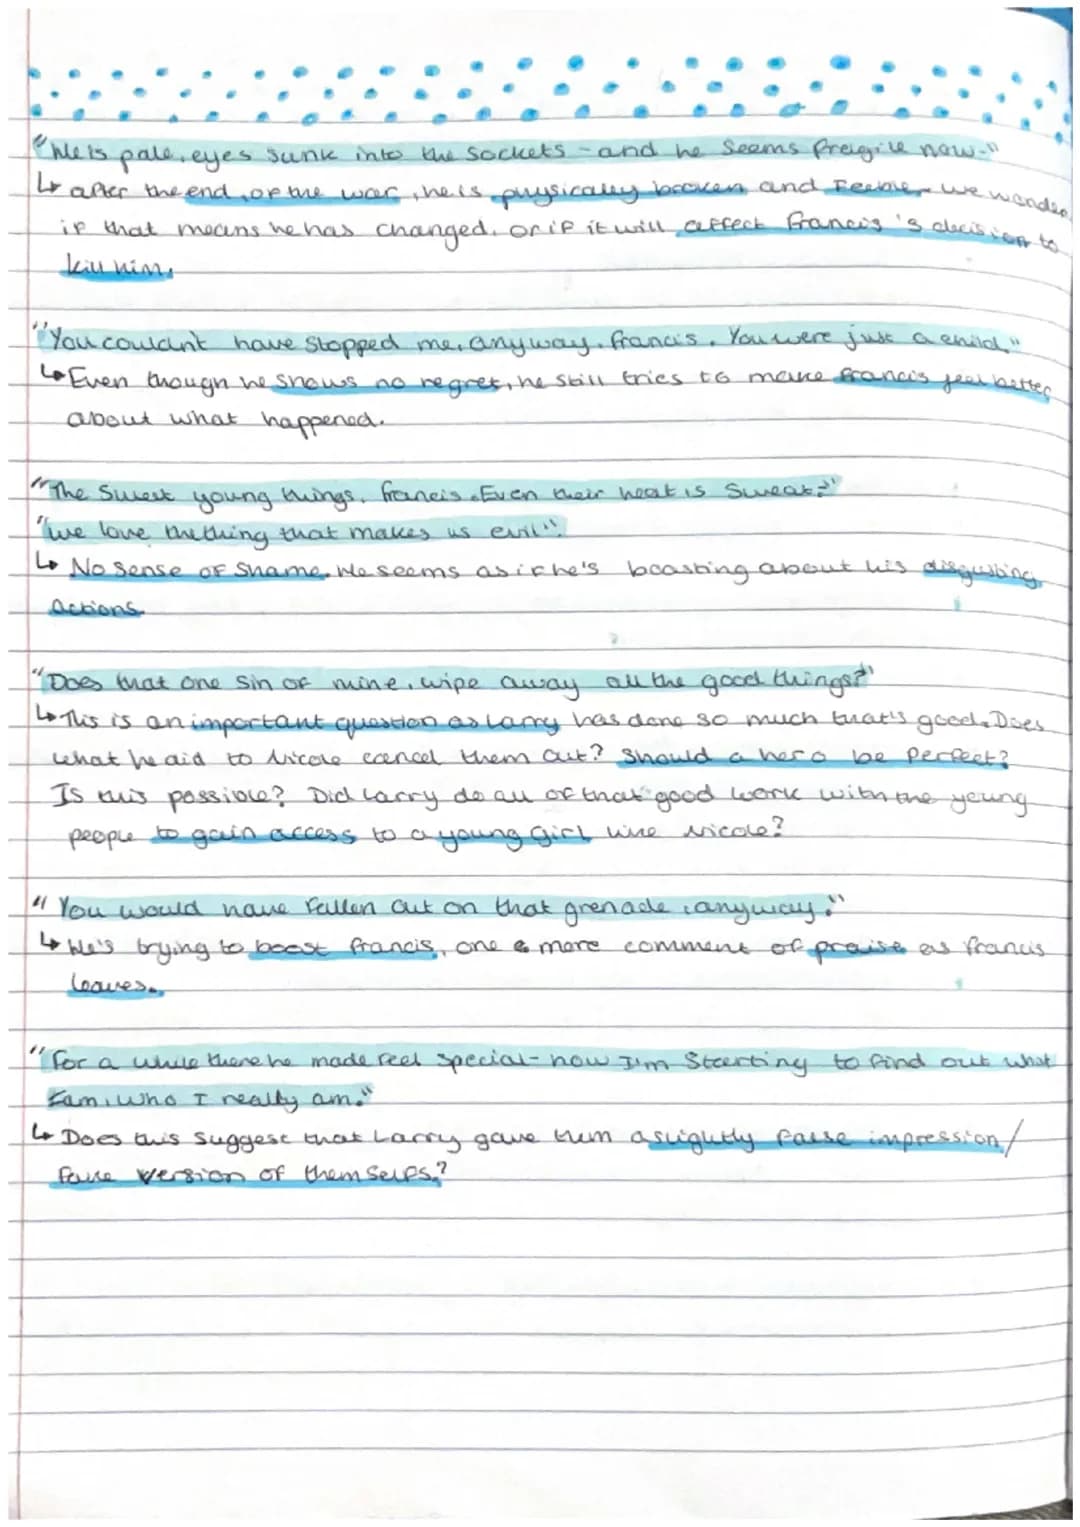 "He is pale, eyes sunk into the sockets - and he seems fragile now."
↳ after the end, of the war, he is physically broken and feeble. we wonder
if that means he has changed, or if it will affect Francis's decision to
kill him.
"You couldn't have stopped me, anyway, francis. You were just a child."
↳ Even though he shows no regret, he still tries to make francis feel better
about what happened.
"The Sweet young things, francis. Even their heat is sweat?"
"we love the thing that makes us evil".
↳ No sense of shame. He seems as if he's boasting about his disgusting
actions.
"Does that one sin of mine, wipe away all the good things?"
↳ This is an important question as Larry has done so much that's good. Does
what he did to Nicole cancel them out? Should a hero be perfect?
Is this possible? Did Larry do all of that good work with the young
people to gain access to a young girl like Nicole?
"You would have fallen out on that grenade, anyway."
↳ He's trying to boost francis, one more comment of praise as francis
leaves.
"For a while there he made feel special - now I'm starting to find out what
I am, who I really am."
↳ Does this suggest that Larry gave them a slightly false impression/
false version of themselfs?